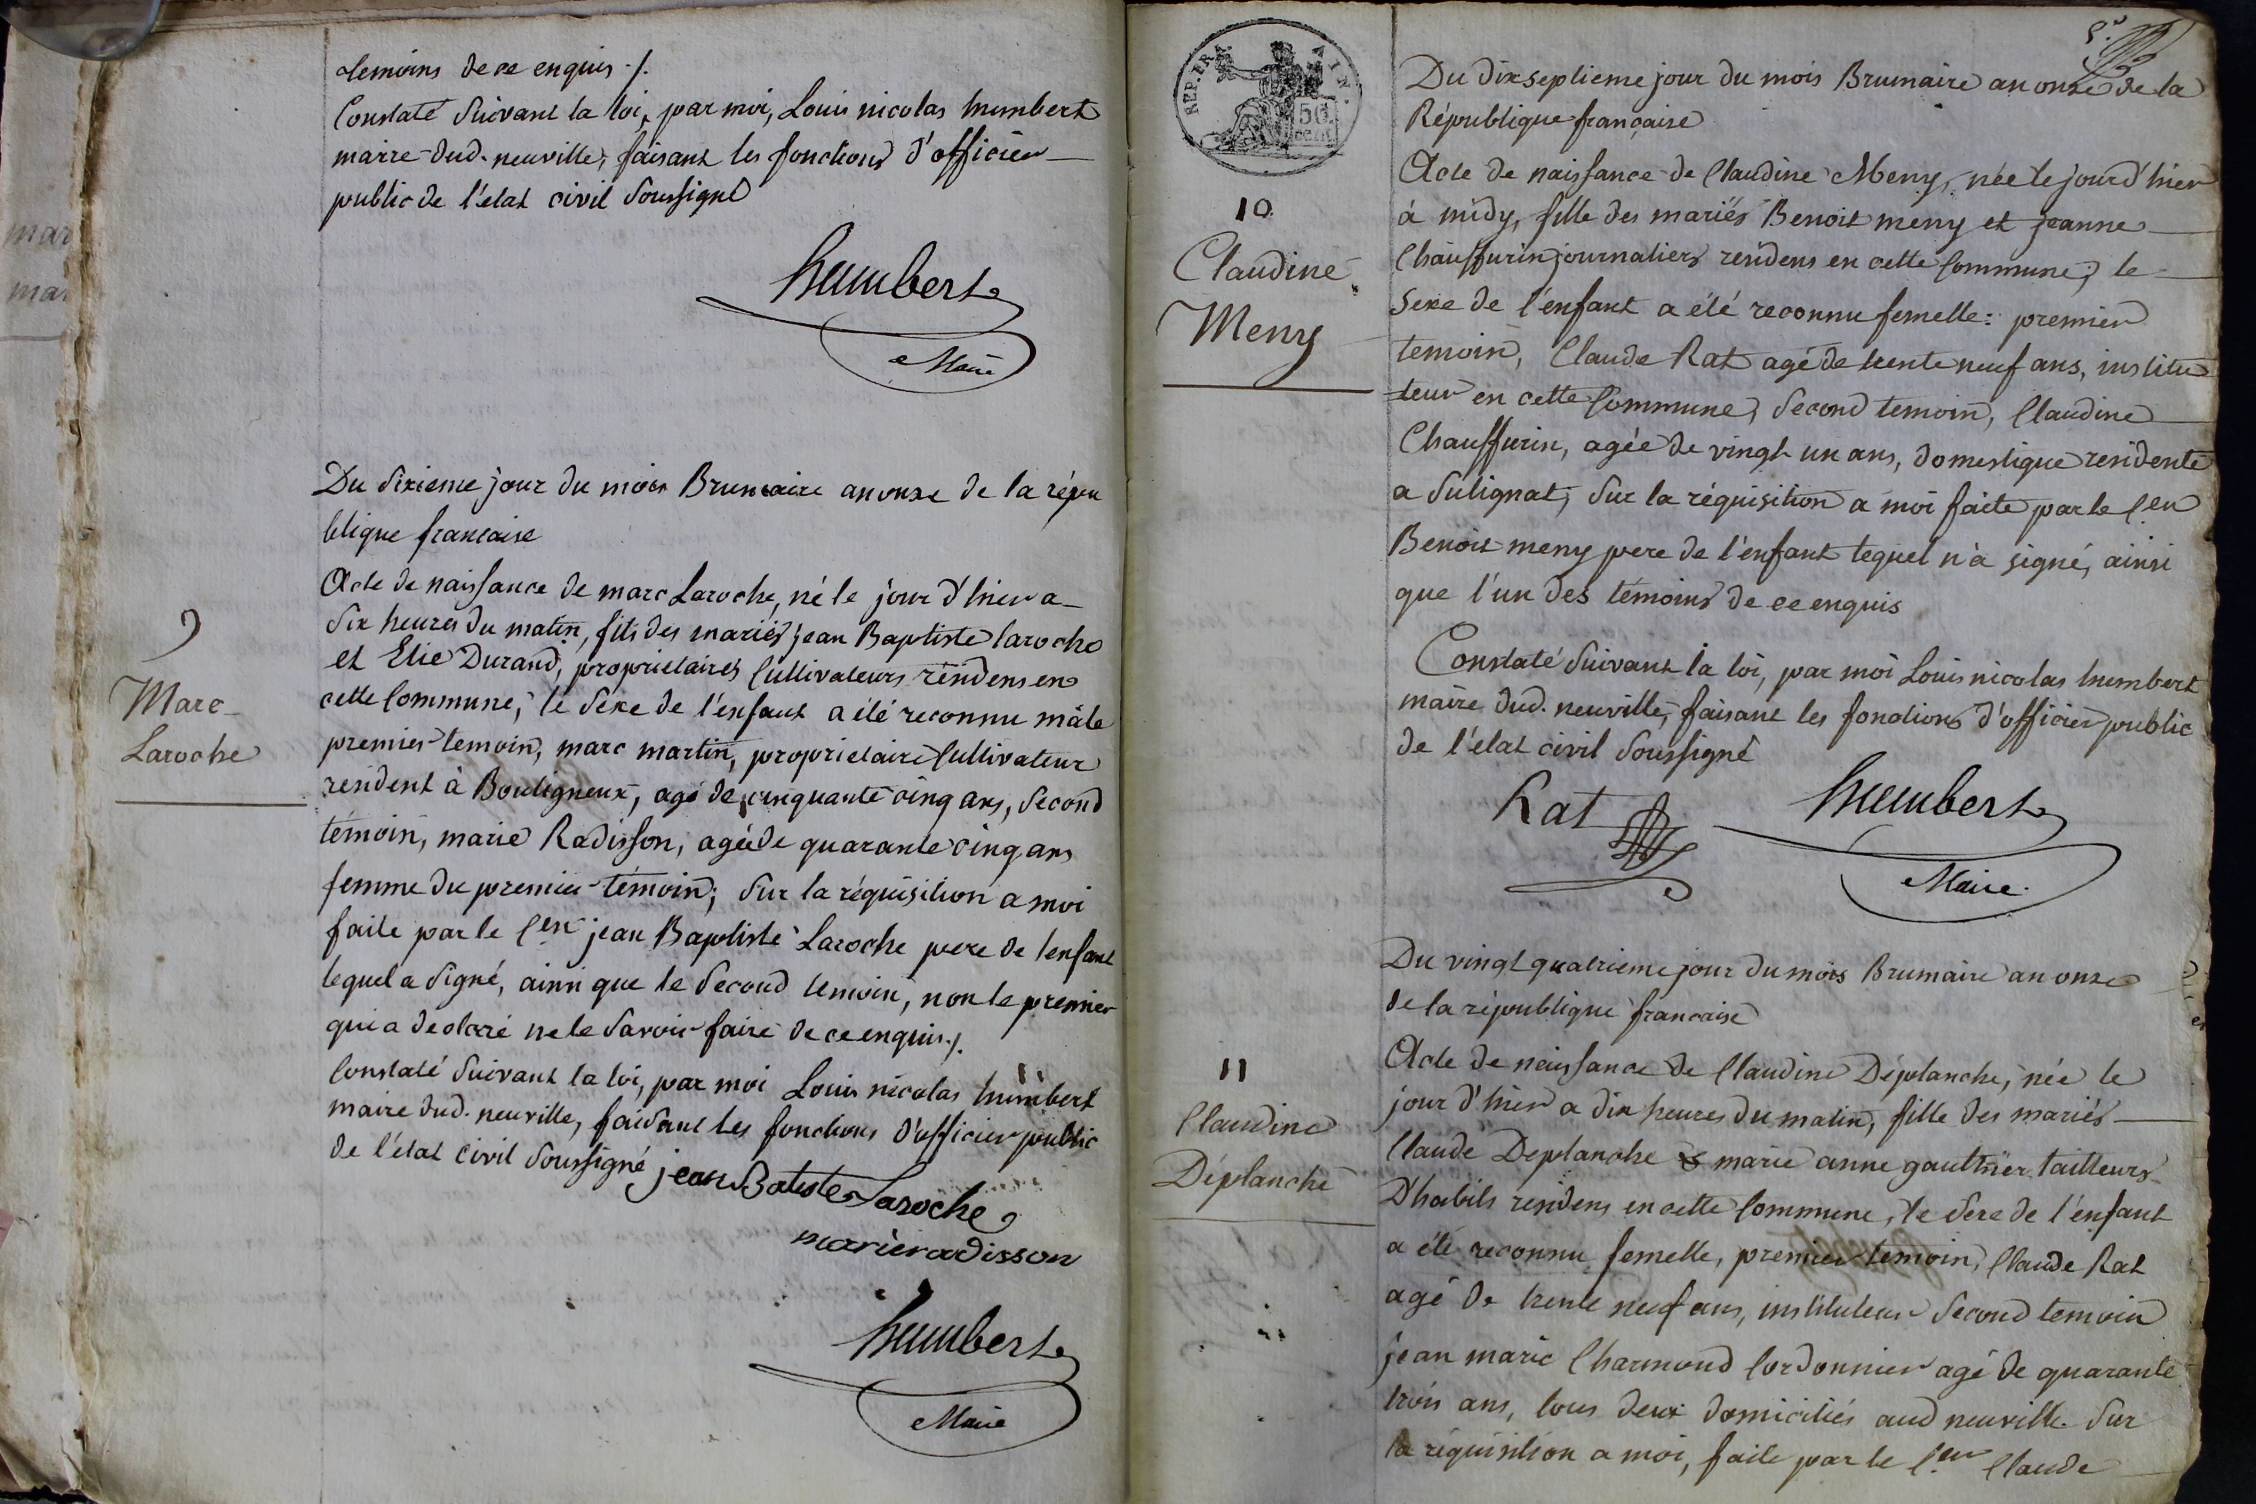 temoins de ce enquis ./.
Constaté suivant la loi, par moi, Louis nicolas humbert
maire dud. neuville, faisant les fonctions d'officier
public de l'état civil soussigné
humbert
Maire
Du sixieme jour du mois Brumaire an onze de la répu
blique francaise
Acte de naissance de marc Laroche, né le jour d'hier a
six heures du matin, fils des mariés jean Baptiste laroche
et Elie Durand, proprietaires Cultivateurs résidens en
cette Commune; le sexe de l'enfant a été reconnu mâle
premier temoin, marc martin, proprietaire Cultivateur
resident à Bouligneux, agé de cinquante cinq ans, second
témoin, marie Radisson, agée de quarante cinq ans
femme du premier témoin; sur la réquisition a moi
faite par le Cen jean Baptiste Laroche pere de l'enfant
lequel a signé, ainsi que le second temoin, non le premier
qui a declaré ne le savoir faire de ce enquis ./.
Constaté suivant la loi, par moi Louis nicolas humbert
maire dud. neuville, faisant les fonctions d'officier public
de l'état civil soussigné
jean Batiste Laroche
marie radisson
humbert
Maire
9
Marc
Laroche
5.e
REP. FRA
AIN.
50
cent.
10
Claudine
Meny
Du dixseptieme jour du mois Brumaire an onze de la
République française
Acte de naissance de Claudine Meny, née le jour d'hier
à midy, fille des mariés Benoit meny et jeanne
Chauffurin journaliers residens en cette Commune; le
sexe de l'enfant a été reconnu femelle: premier
temoin, Claude Rat agé de trente neuf ans, institu
teur en cette Commune, second temoin, Claudine
Chauffurin, agée de vingt un ans, domestique residente
a Sulignat; sur la réquisition a moi faite par le Cen
Benoit meny pere de l'enfant lequel n'a signé, ainsi
que l'un des témoins de ce enquis
Constaté suivant la loi, par moi Louis nicolas humbert
maire dud. neuville, faisant les fonctions d'officier public
de l'état civil soussigné
Rat
humbert
Maire
Du vingt quatrieme jour du mois Brumaire an onze
de la république francaise
Acte de naissance de Claudine Déplanche, née le
jour d'hier a dix heures du matin, fille des mariés
Claude Deplanche & marie anne gaulthier tailleurs
d'habits residens en cette Commune, le sexe de l'enfant
a été reconnu femelle, premier temoin, Claude Rat
agé de trente neuf ans, instituteur second temoin
jean marie Charmond Cordonnier agé de quarante
trois ans, tous deux domiciliés aud neuville. sur
la réquisition a moi, faite par le Cen Claude
11
Claudine
Déplanche